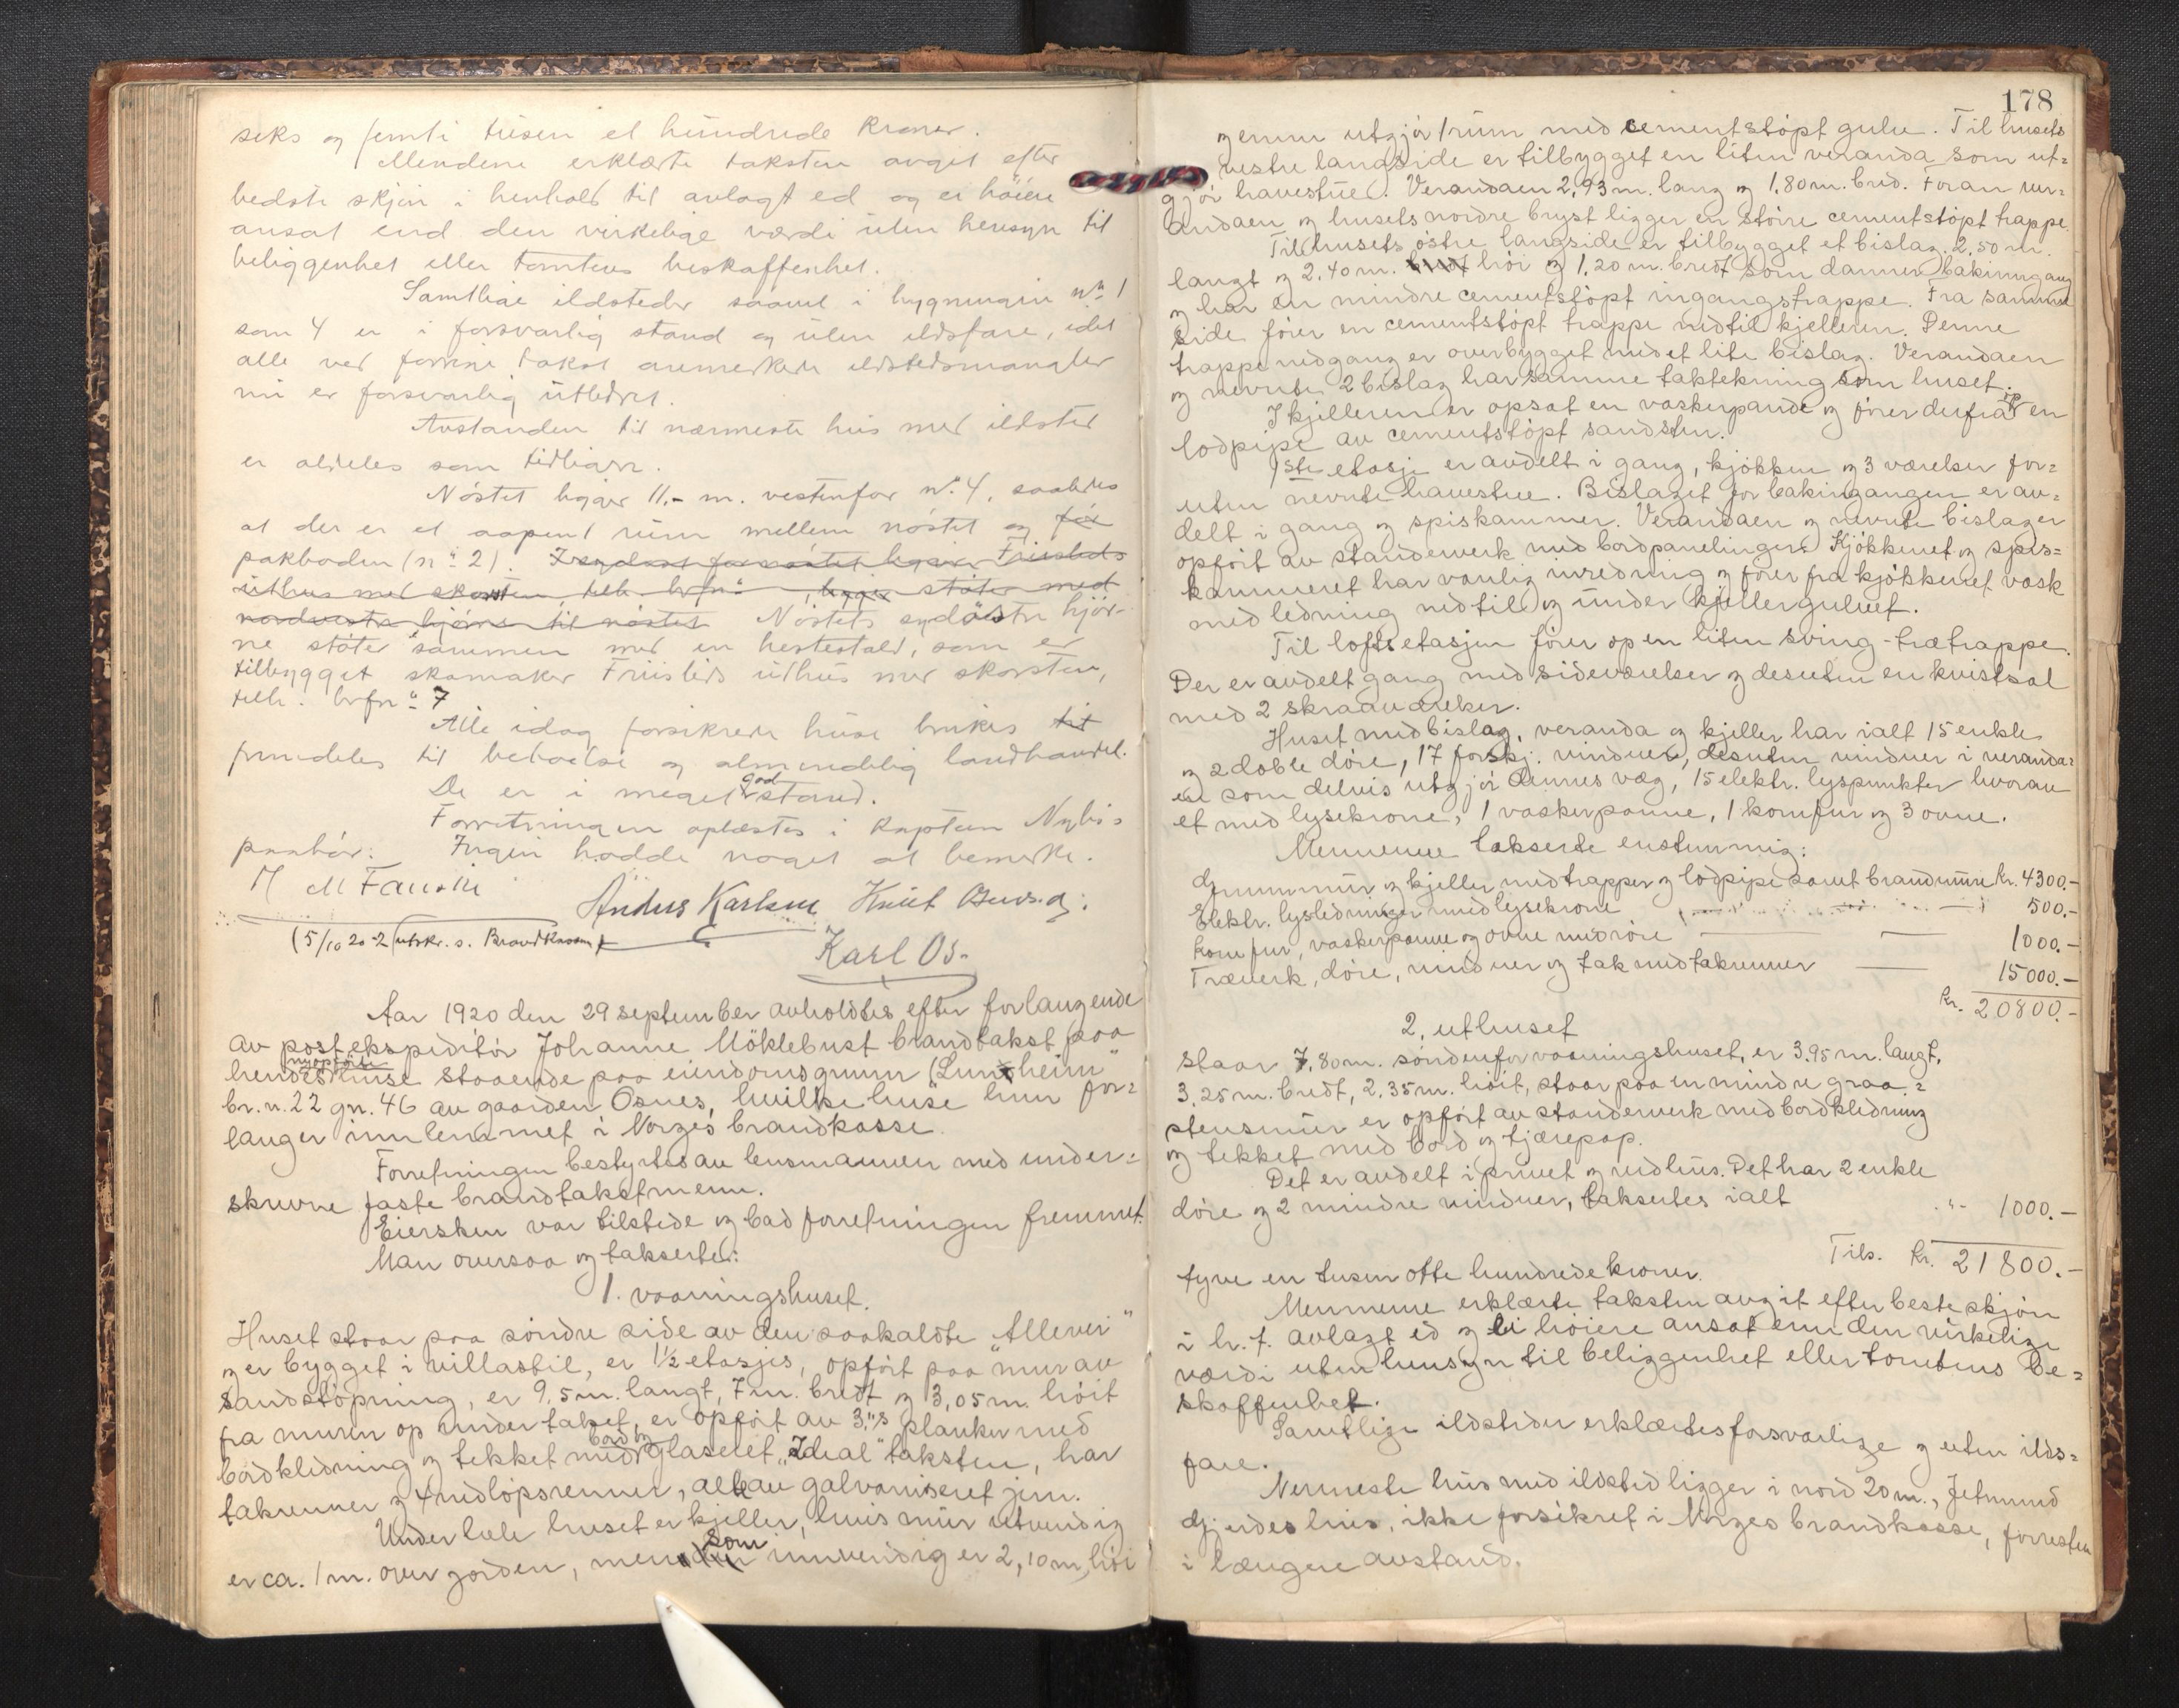 seks og femti tusen et hundrede kroner.
Mendene erklærte taksten avget efter
bedste skjøn i henhold til avlagt ed og ei høiere
ansat end den virkelige værdi uten hensyn til
beliggenhet eller tomtens beskaffenhet.
Samtlige ildsteder saavel i bygningen nº 1
som 4 er i forsvarlig stand og uten ildsfare, idet
alle ved forrige takst anmerkede ildstedsmangler
nu er forsvarlig utbedret.
Avstanden til nærmeste hus med ildsted
er aldeles som tidligere.
Nöstet ligger 11,- m. vestenfor nº 4, saaledes
at der er et aapent rum mellem nöstet og för
pakboden (nº 2). I sydost for nöstet ligger Friislids
uthus med skorsten, tilh. brfnº , ligger støter med
nordvestre hjörne til nöstet Nöstets sydöstre hjör-
ne støter sammen med en hestestald, som er
tilbygget skomaker Friislids uthus med skorsten,
tilh. brfnº 7
Alle idag forsikrede huse brukes til
fremdeles til beboelse og almindelig landhandel.
De er i meget god stand.
Forretningen oplæstes i kaptein Nybö's
paahör. Ingen hadde noget at bemerke.
M M Fauske Anders Karlsen Knut Osnesg.
(5/10 20 - 2 utskr. s. Brandkassen)
Karl Os.
Aar 1920 den 29 september avholdtes efter forlangende
av postekspeditör Johanne Möklebust brandtakst paa
hendes nyopförte huse staaende paa eiendomsgrunn "Lundheim"
br. n. 22 gn. 46 av gaarden Osnes, hvilke huse hun for=
langer innlemmet i Norges brandkasse.
Forretningen bestyrtes av lensmannen med under=
skrevne faste brandtakstmenn.
Eiersken var tilstede og bad forretningen fremmet.
Man oversaa og takserte:
1. vaaningshuset.
Huset staar paa söndre side av den saakaldte "Alleen"
og er bygget i villastil, er 1½ etasjes, opfört paa mur av
sandstöpning, er 9,5 m. langt, 7 m. bredt og 3,05 m. höit
fra muren op under taket, er opfört av 3"s planker med
bordkledning og tekket med bord og glaseret "Ideal" taksten, har
takrenner og 4 nedlöpsrenner, alt av galvaniseret jern.
Under hele huset er kjeller, hvis mur utvendig
er ca. 1 m. over jorden, men som innvendig er 2,10 m. höi
178
og enn utgjör 1 rum med cementstöpt gulv. Til husets
vestre langside er tilbygget en liten veranda som ut=
gjör havestue. Verandaen 2,93 m. lang og 1,80 m. bred. Foran ver=
andaen og husets nordre bryst ligger en större cementstöpt trappe.
Til husets östre langside er tilbygget et bislag, 2,50 m.
langt og 2,40 m. bredt höi og 1,20 m. bredt som danner bakinngang
og har en mindre cementstöpt ingangstrappe. Fra samme
side förer en cementstöpt trappe ned til kjelleren. Denne
trappe nedgang er overbygget med et lite bislag. Verandaen
og nevnte 2 bislag har samme taktekning som huset.
I kjelleren er opsat en vaskerpande og förer derfra op en
lodpipe av cementstöpt sandsten.
1ste etasje er avdelt i gang, kjökken og 3 værelser for=
uten nevnte havestue. Bislaget for bakingangen er av=
delt i gang og spiskammer. Verandaen og nevnte bislager
opfört av standerverk med bordpanelinger. Kjökkenet og spis=
kammeret har vanlig inredning og förer fra kjökkenet vask
med ledning ned til og under kjellergulvet.
Til loftsetasjen förer op en liten sving-trætrappe.
Der er avdelt gang med sideværelser og desuten en kvistsal
med 2 skraaværelser.
Huset med bislag, veranda og kjeller har ialt 15 enkle
og 2 doble döre, 17 forskj. vinduer, desuten vinduer i veranda=
en som delvis utgjör dennes væg, 15 elektr. lyspunkter hvorav
et med lysekrone, 1 vaskerpanne, 1 komfur og 3 ovne.
Mennene takserte enstemmig:
Grunnmur og kjeller med trapper og lodpipe samt brandmure Kr. 4300.-
Elektr. lysledninger med lysekrone 500.-
Komfur, vaskerpanne og ovne med röre 1000.-
Træverk, döre, vinduer og tak med takrenner 15000.-
Kr. 20800.-
2. uthuset
staar 7,80 m. söndenfor vaaningshuset, er 3,95 m. langt,
3,25 m. bredt, 2,35 m. höit, staar paa en mindre graa=
stensmur er opfört av standerverk med bordkledning
og tekket med bord og tjærepap.
Det er avdelt i privet og vedhus. Det har 2 enkle
döre og 2 mindre vinduer, takseres ialt " 1000.-
Tils. Kr. 21800.-
tyve en tusen otte hundrede kroner.
Mennene erklærte taksten avgit efter beste skjön
i h. t. avlagt ed og ei höiere ansat enn den virkelige
værdi uten hensyn til beliggenhet eller tomtens be=
skaffenhet.
Samtlige ildsteder erklærtes forsvarlige og uten ilds=
fare.
Nermeste hus med ildsted ligger i nord 20 m., Jetmund
Gjerdes hus, ikke forsikret i Norges brandkasse, forresten
i længere avstand.